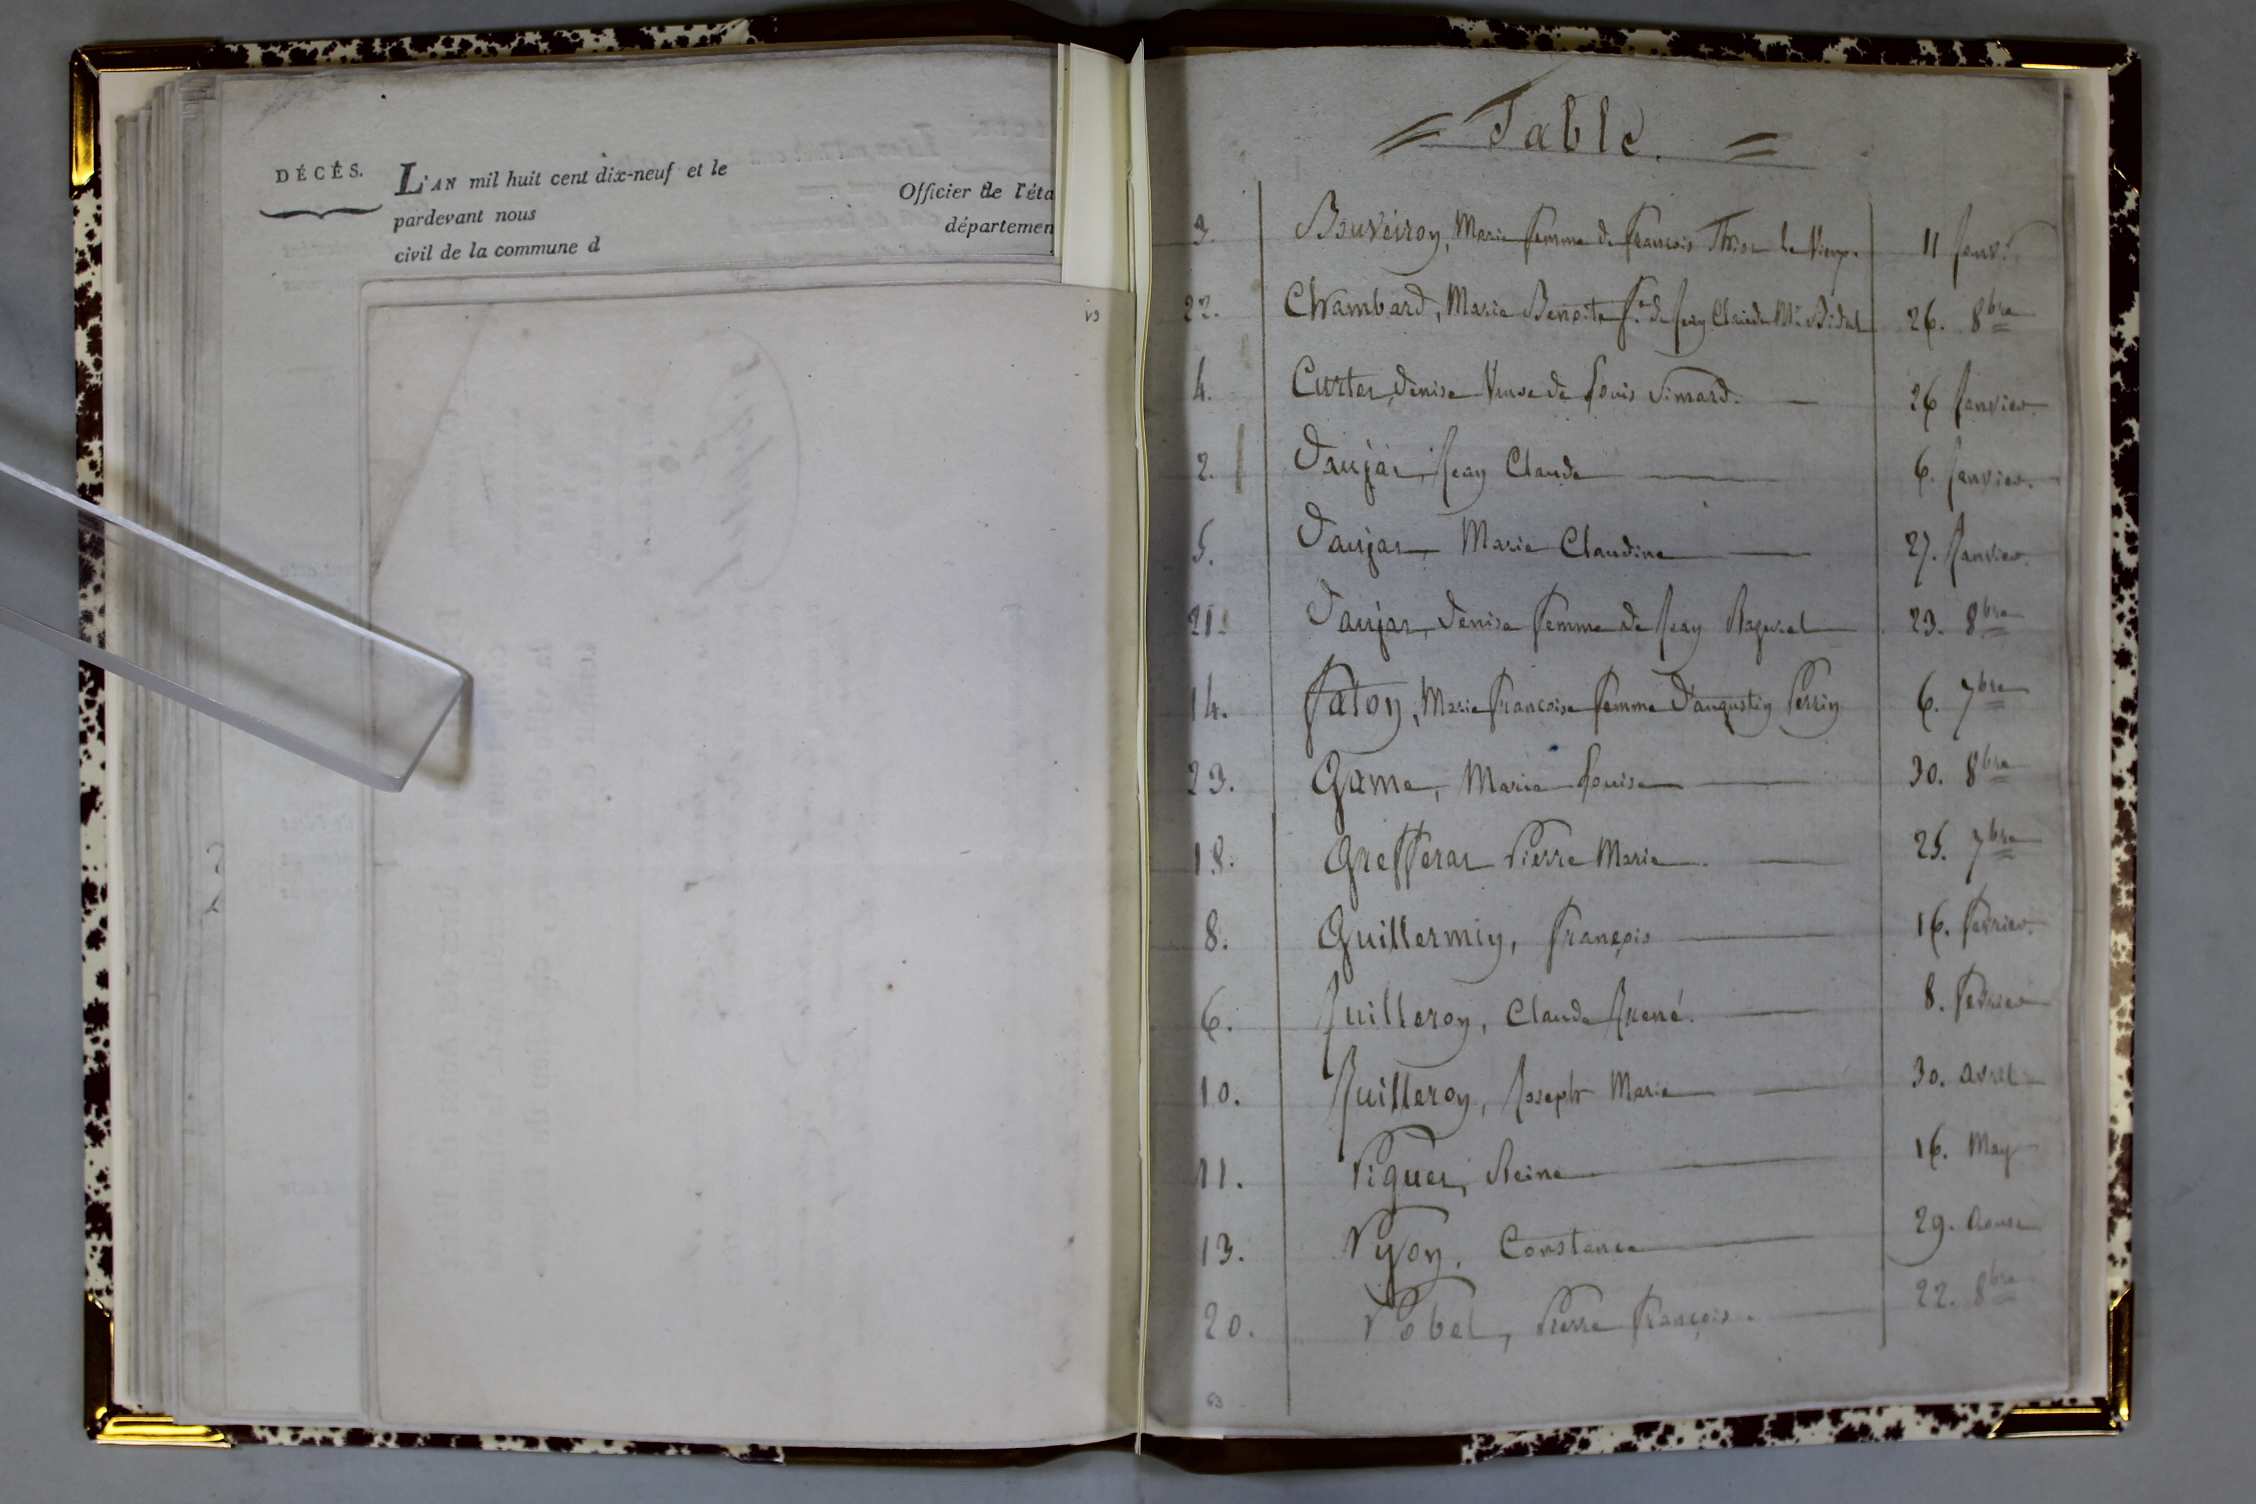 DÉCÈS.
L'AN mil huit cent dix-neuf et le
pardevant nous
Officier de l'éta
civil de la commune d
départemen
= Table. =
3. Bouveiron, Marie femme de François Thion le Vieux. 11 Janv.r
22. Chambard, Marie Benoite f.e de Jean Claude M.ie Bidal 26. 8bre
4. Curter, denise Veuve de Louis Simard. 26 Janvier.
2. Daujar, Jean Claude 6. Janvier.
5. Daujar, Marie Claudine 27. Janvier.
21. Daujar, denise femme de Jean 23. 8bre
14. faton, Marie françoise femme D'augustin Perrin 6. 7bre
23. Game, Marie Louise 30. 8bre
18. Grefferar Pierre Marie 25. 7bre
8. Guillermin, françois 16. fevrier.
6. Juilleron, Claude René. 8. fevrier
10. Juilleron, Joseph Marie 30. avril
11. Piquer, Reine 16. May
13. Pyon, Constance 29. Aoust
20. Pobel, Pierre françois. 22. 8bre
63